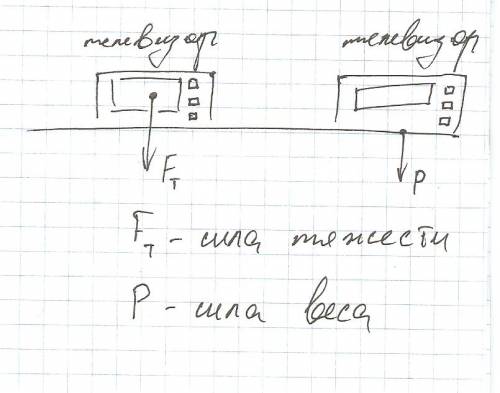 телевизор телевизор
Fт P
Fт - сила тяжести
P - сила веса